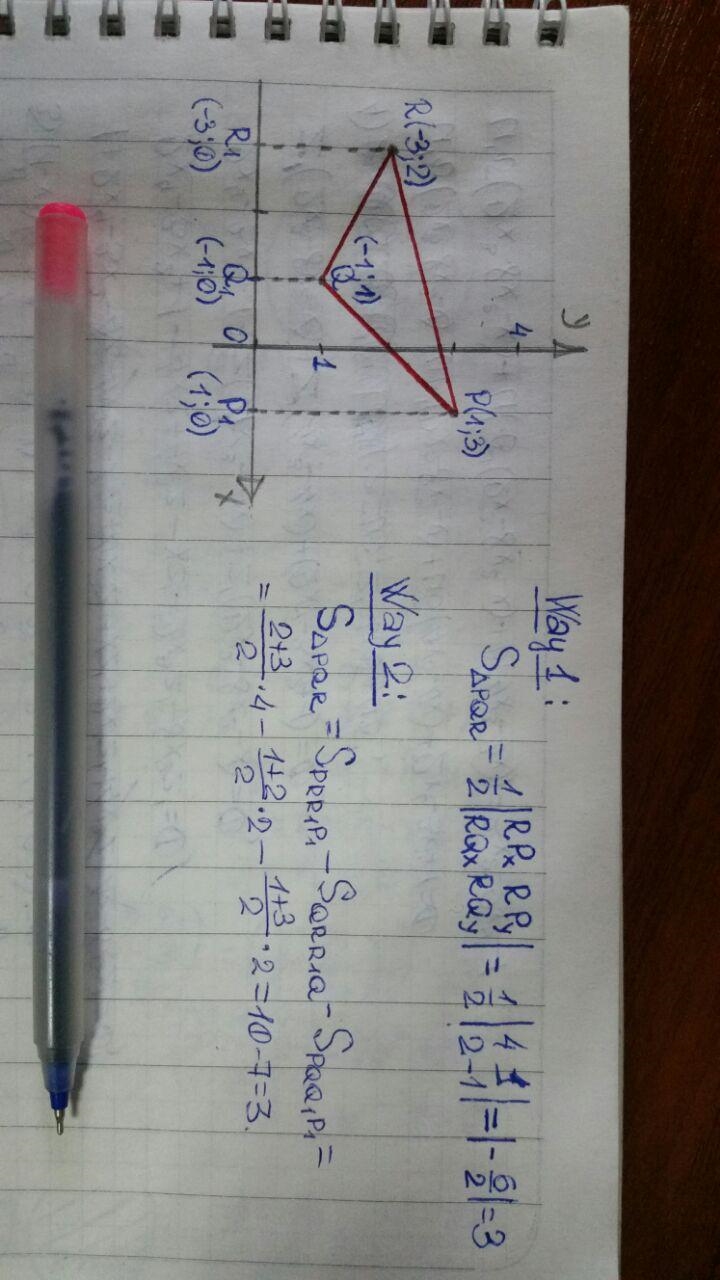 y
4
R(-3;2)
P(1;3)
(-1;1)
Q
1
R1 Q1 0 P1 x
(-3;0) (-1;0) (1;0)
Way 1:
S△PQR = 1/2 |RPx RPy RQx RQy| = 1/2 |4 1 2 -1| = |-6/2| = 3
Way 2:
S△PQR = SPRR1P1 - SQRR1Q - SPQQ1P1 =
= 2+3/2 · 4 - 1+2/2 · 2 - 1+3/2 · 2 = 10 - 7 = 3.